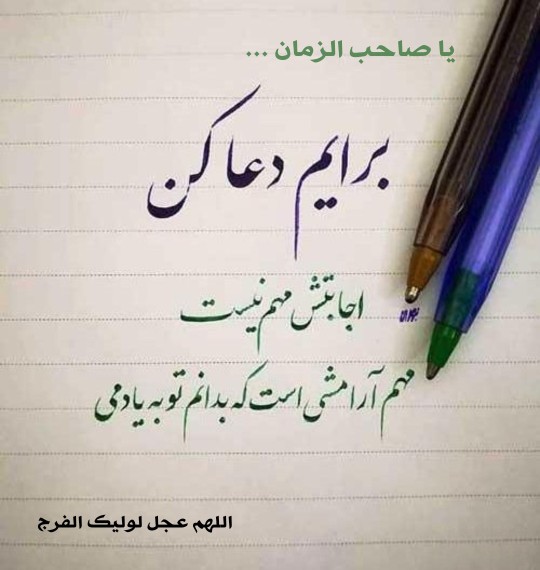 یا صاحب الزمان ...
برایم دعا کن
اجابتش مهم نیست
مهم آرامشی است که بدانم تو به یادمی
اللهم عجل لولیک الفرج